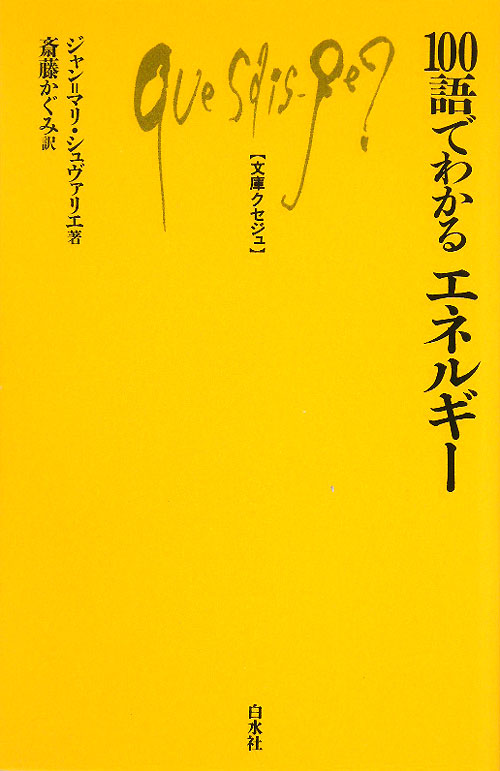 100語でわかる エネルギー
Que sais-je?
【文庫クセジュ】
ジャン=マリ・シュヴァリエ著
斎藤かぐみ訳
白水社